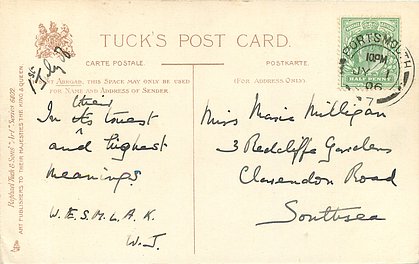 TUCK'S POST CARD.
CARTE POSTALE.
POSTKARTE.
ABROAD, THIS SPACE MAY ONLY BE USED
FOR NAME AND ADDRESS OF SENDER
(FOR ADDRESS ONLY).
1st July 06
their
In its truest
and highest
meanings
W.E.S.M.L.A.K.
W.J.
Miss Maria Milligan
3 Redcliffe Gardens
Clarendon Road
Southsea
PORTSMOUTH
10 PM
JY 1
06
HALF PENNY
Raphael Tuck & Sons' "Art" Series
ART PUBLISHERS TO THEIR MAJESTIES THE KING & QUEEN